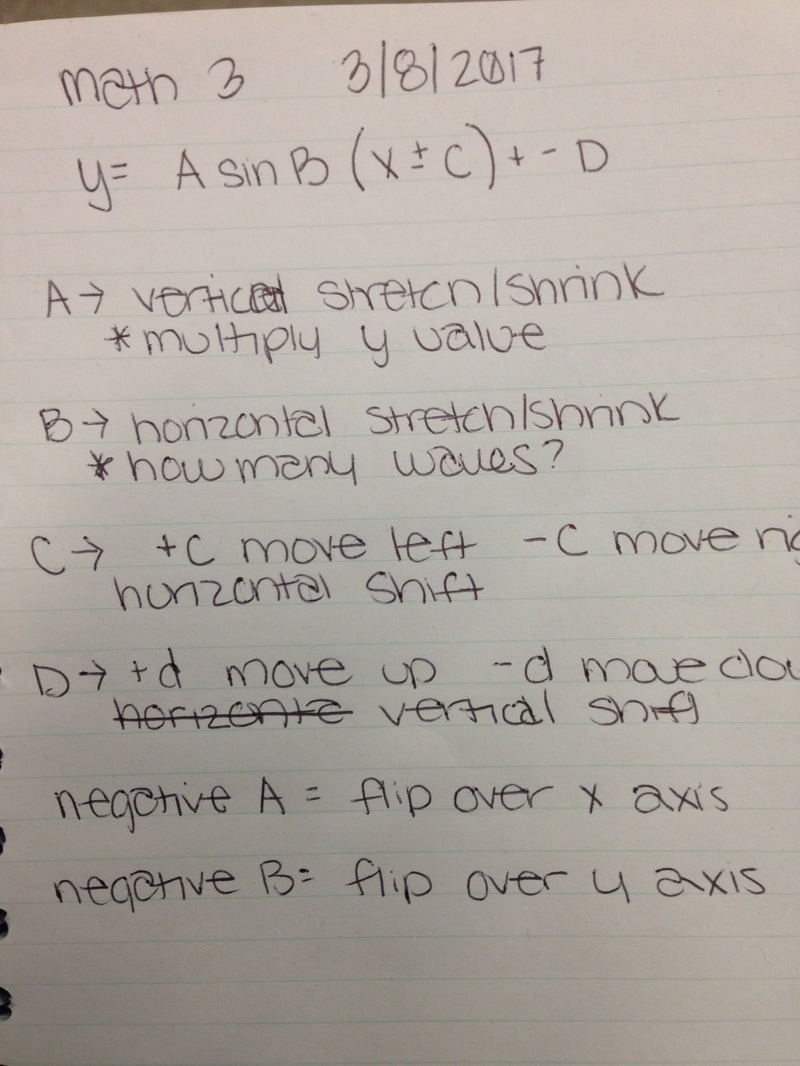 math 3 3/8/2017
y= A sin B (x ± C) + - D
A → vertical stretch/shrink
* multiply y value
B → horizontal stretch/shrink
* how many waves?
C → +C move left -C move rig
horizontal shift
D → +d move up -d move dow
horizonta vertical shift
negative A = flip over x axis
negative B = flip over y axis